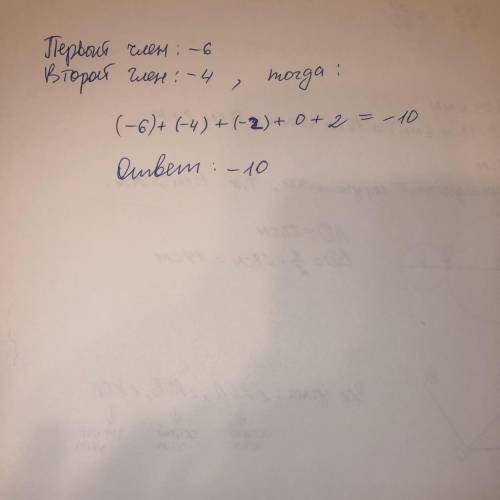 Первый член: -6
Второй член: -4, тогда:
(-6)+(-4)+(-2)+0+2=-10
Ответ: -10